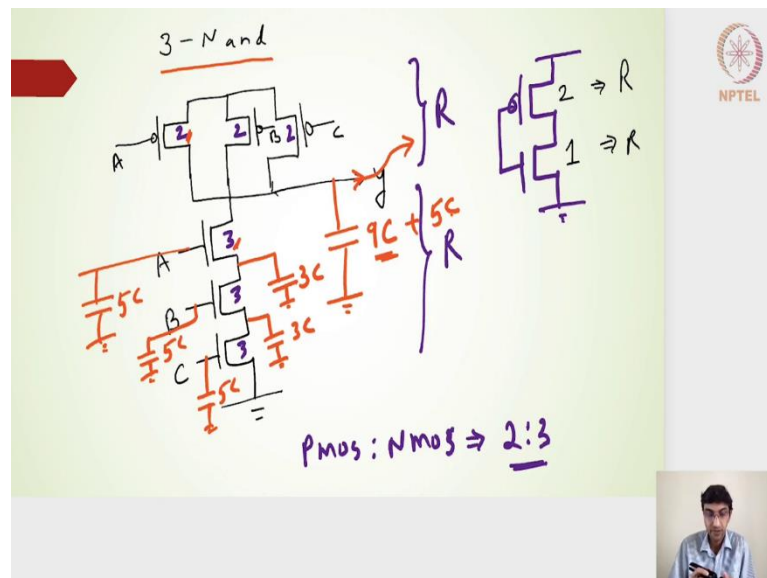 3-Nand
NPTEL
A 2 2 B 2 C
R
2 ⇒ R
1 ⇒ R
y
9C + 5C
R
A 3
5C
3C
B 3
5C
3C
C 3
5C
PMOS : NMOS ⇒ 2:3